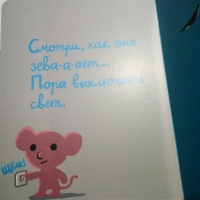 Смотри, как она
зева-а-ает...
Пора выключать
свет.
ЩЁЛК!